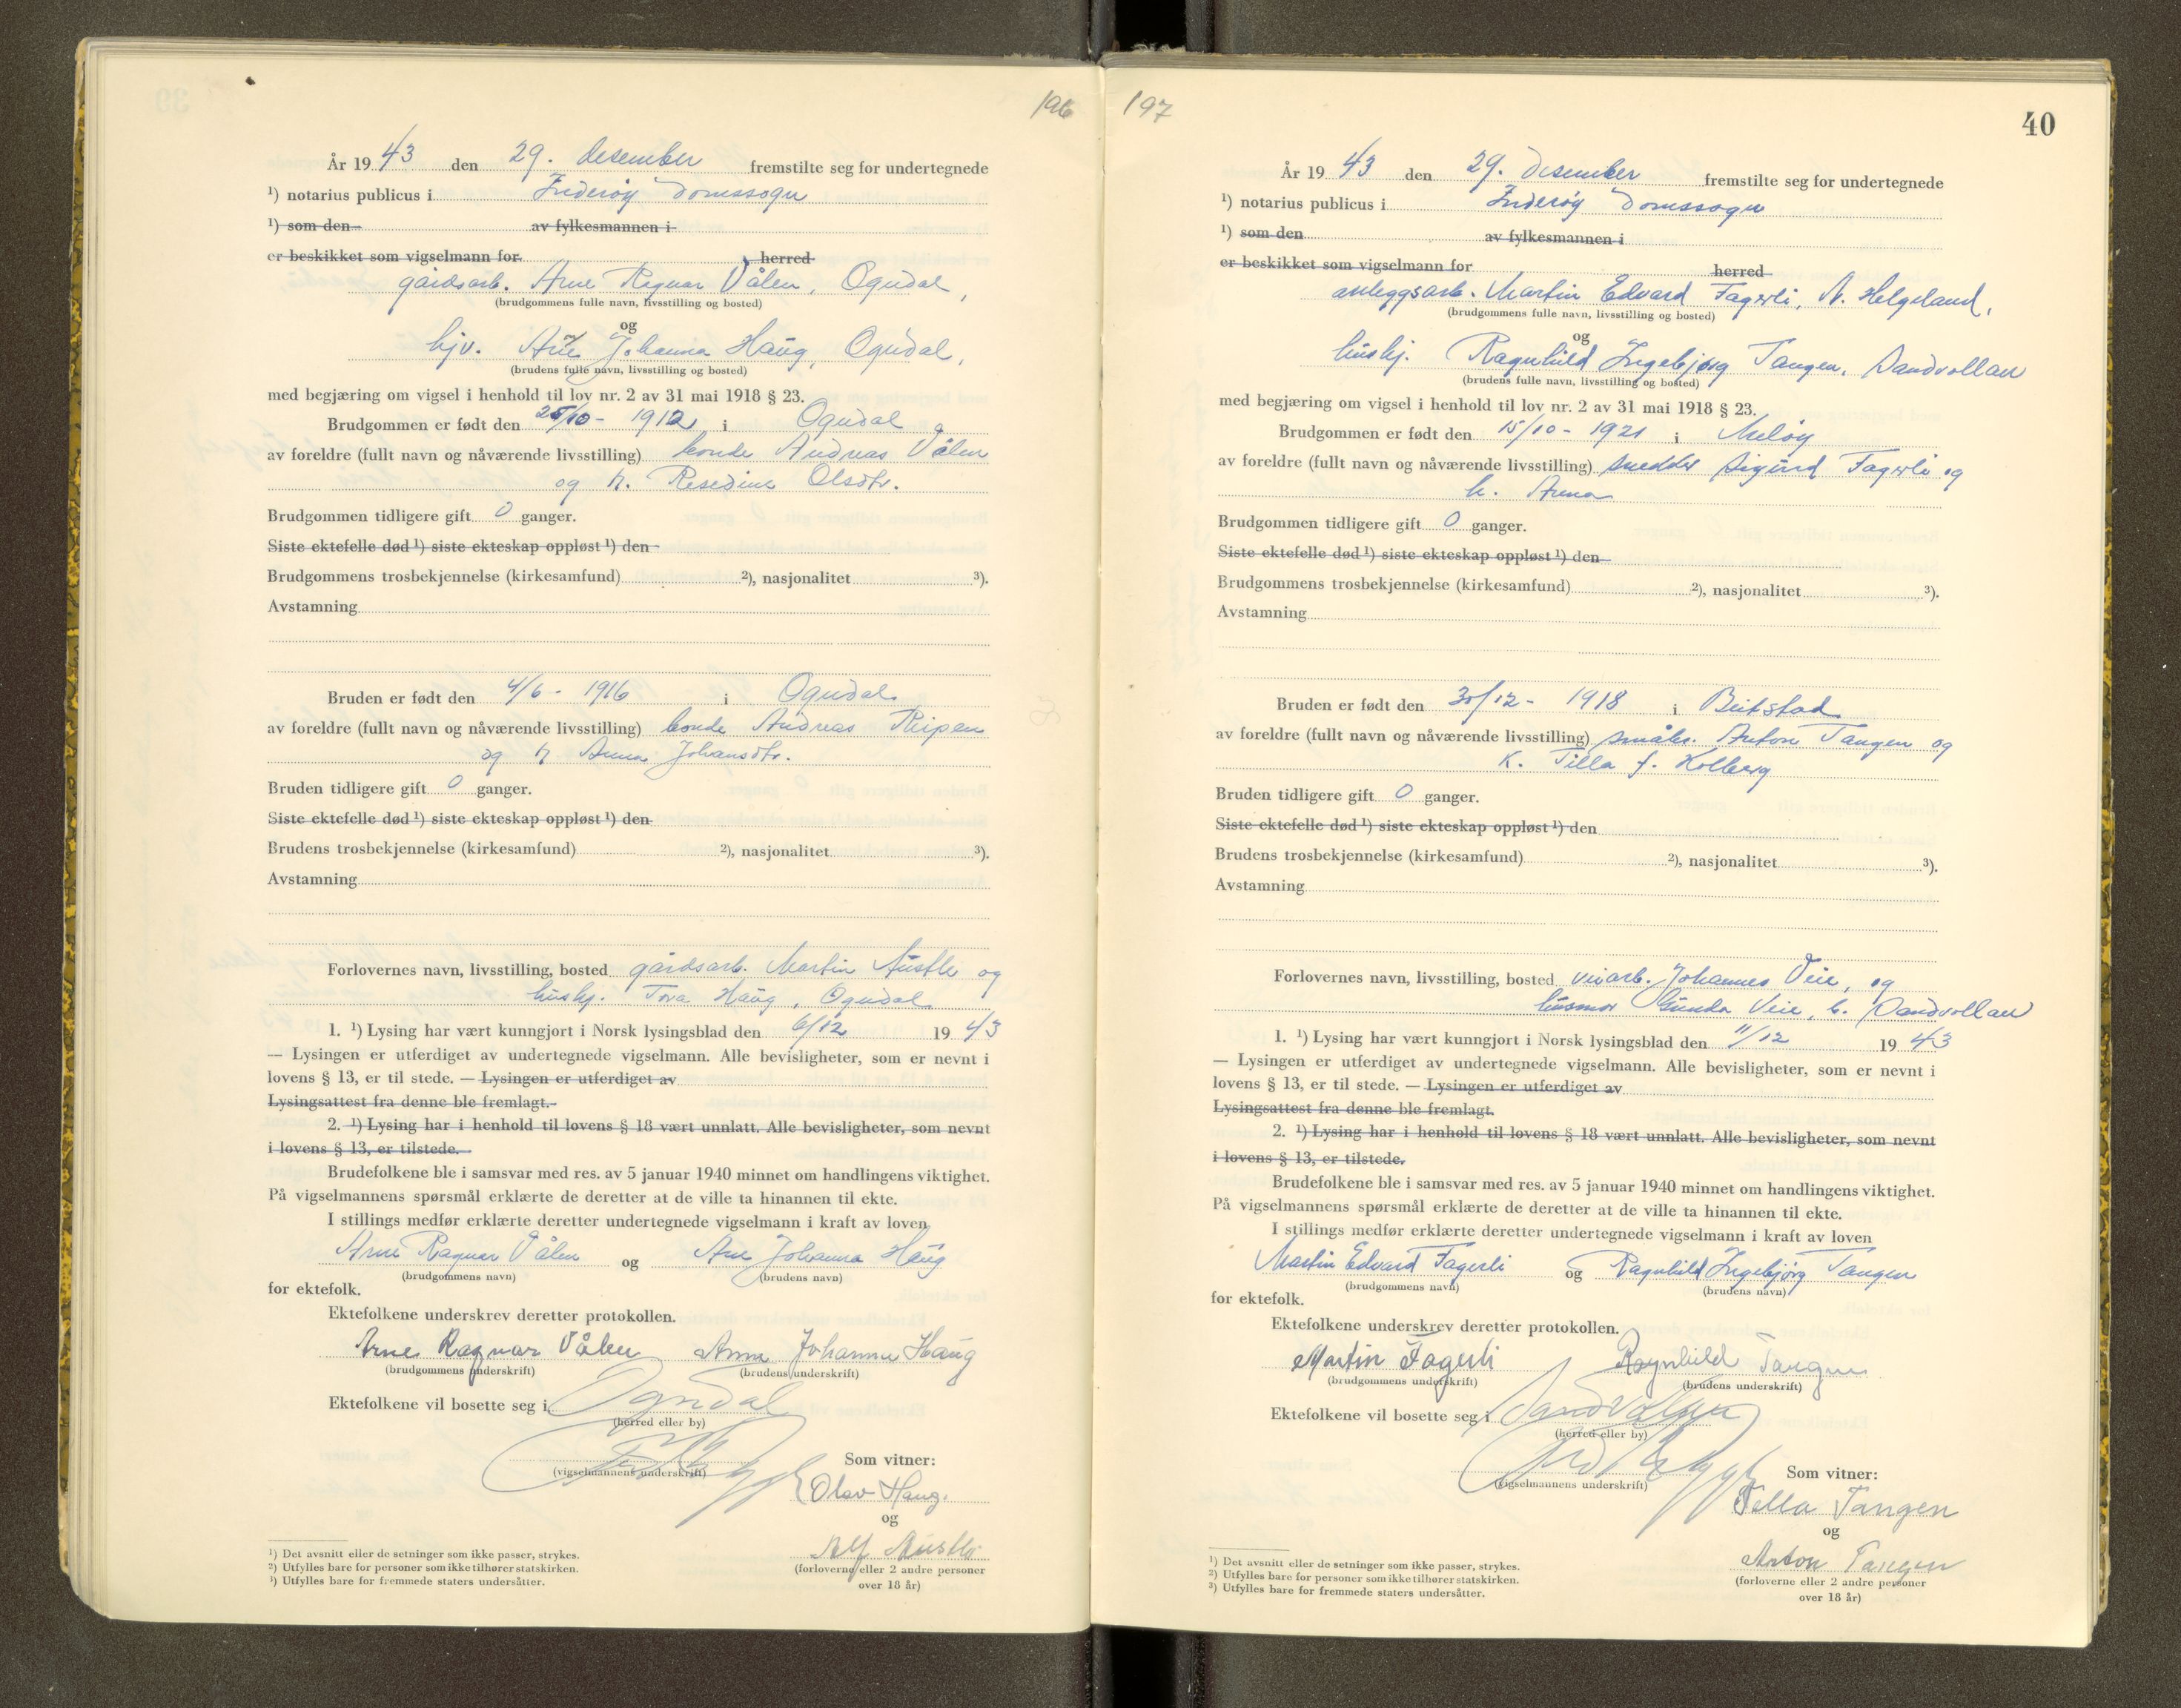 196
År 1943 den 29. desember fremstilte seg for undertegnede
¹) notarius publicus i Inderøy domssogn
¹) som den av fylkesmannen i
er beskikket som vigselmann for herred
gårdsarb. Arne Ragnar Vålen, Ogndal,
(brudgommens fulle navn, livsstilling og bosted)
og
hjv. Ane Johanna Haug, Ogndal,
(brudens fulle navn, livsstilling og bosted)
med begjæring om vigsel i henhold til lov nr. 2 av 31 mai 1918 § 23.
Brudgommen er født den 25/10 - 1912 i Ogndal
av foreldre (fullt navn og nåværende livsstilling) bonde Andreas Vålen
og h. Resedine Olsdtr.
Brudgommen tidligere gift 0 ganger.
Siste ektefelle død ¹) siste ekteskap oppløst ¹) den
Brudgommens trosbekjennelse (kirkesamfund) ²), nasjonalitet ³).
Avstamning
Bruden er født den 4/6 - 1916 i Ogndal
av foreldre (fullt navn og nåværende livsstilling) bonde Andreas Ripen
og h Anna Johansdtr.
Bruden tidligere gift 0 ganger.
Siste ektefelle død ¹) siste ekteskap oppløst ¹) den
Brudens trosbekjennelse (kirkesamfund) ²), nasjonalitet ³).
Avstamning
Forlovernes navn, livsstilling, bosted gårdsarb. Martin Austli og
hushj. Tora Haug, Ogndal
1. ¹) Lysing har vært kunngjort i Norsk lysingsblad den 6/12 1943
— Lysingen er utferdiget av undertegnede vigselmann. Alle bevisligheter, som er nevnt i
lovens § 13, er til stede. — Lysingen er utferdiget av
Lysingsattest fra denne ble fremlagt.
2. ¹) Lysing har i henhold til lovens § 18 vært unnlatt. Alle bevisligheter, som nevnt
i lovens § 13, er tilstede.
Brudefolkene ble i samsvar med res. av 5 januar 1940 minnet om handlingens viktighet.
På vigselmannens spørsmål erklærte de deretter at de ville ta hinannen til ekte.
I stillings medfør erklærte deretter undertegnede vigselmann i kraft av loven
Arne Ragnar Vålen og Ane Johanna Haug
(brudgommens navn) (brudens navn)
for ektefolk.
Ektefolkene underskrev deretter protokollen.
Arne Ragnar Vålen Anna Johanna Haug
(brudgommens underskrift) (brudens underskrift)
Ektefolkene vil bosette seg i Ogndal
(herred eller by)
(vigselmannens underskrift)
Som vitner:
Olav Haug.
og
Alf Austli
(forloverne eller 2 andre personer
over 18 år)
¹) Det avsnitt eller de setninger som ikke passer, strykes.
²) Utfylles bare for personer som ikke tilhører statskirken.
³) Utfylles bare for fremmede staters undersåtter.
197
40
År 1943 den 29. desember fremstilte seg for undertegnede
¹) notarius publicus i Inderøy domssogn
¹) som den av fylkesmannen i
er beskikket som vigselmann for herred
anleggsarb. Martin Edvard Fagerli, N. Helgeland,
(brudgommens fulle navn, livsstilling og bosted)
og
hushj. Ragnhild Ingebjørg Tangen, Sandvollan
(brudens fulle navn, livsstilling og bosted)
med begjæring om vigsel i henhold til lov nr. 2 av 31 mai 1918 § 23.
Brudgommen er født den 15/10 - 1921 i Meløy
av foreldre (fullt navn og nåværende livsstilling) snedder Sigurd Fagerli og
h. Anna
Brudgommen tidligere gift 0 ganger.
Siste ektefelle død ¹) siste ekteskap oppløst ¹) den
Brudgommens trosbekjennelse (kirkesamfund) ²), nasjonalitet ³).
Avstamning
Bruden er født den 30/12 - 1918 i Beitstad
av foreldre (fullt navn og nåværende livsstilling) småbr. Anton Tangen og
k. Tilla f. Kolberg
Bruden tidligere gift 0 ganger.
Siste ektefelle død ¹) siste ekteskap oppløst ¹) den
Brudens trosbekjennelse (kirkesamfund) ²), nasjonalitet ³).
Avstamning
Forlovernes navn, livsstilling, bosted veiarb. Johannes Veie, og
husmor Gunda Veie, b. Sandvollan
1. ¹) Lysing har vært kunngjort i Norsk lysingsblad den 11/12 1943
— Lysingen er utferdiget av undertegnede vigselmann. Alle bevisligheter, som er nevnt i
lovens § 13, er til stede. — Lysingen er utferdiget av
Lysingsattest fra denne ble fremlagt.
2. ¹) Lysing har i henhold til lovens § 18 vært unnlatt. Alle bevisligheter, som nevnt
i lovens § 13, er tilstede.
Brudefolkene ble i samsvar med res. av 5 januar 1940 minnet om handlingens viktighet.
På vigselmannens spørsmål erklærte de deretter at de ville ta hinannen til ekte.
I stillings medfør erklærte deretter undertegnede vigselmann i kraft av loven
Martin Edvard Fagerli og Ragnhild Ingebjørg Tangen
(brudgommens navn) (brudens navn)
for ektefolk.
Ektefolkene underskrev deretter protokollen.
Martin Fagerli Ragnhild Tangen
(brudgommens underskrift) (brudens underskrift)
Ektefolkene vil bosette seg i Sandvollan
(herred eller by)
(vigselmannens underskrift)
Som vitner:
Tella Tangen
og
Anton Tangen
(forloverne eller 2 andre personer
over 18 år)
¹) Det avsnitt eller de setninger som ikke passer, strykes.
²) Utfylles bare for personer som ikke tilhører statskirken.
³) Utfylles bare for fremmede staters undersåtter.